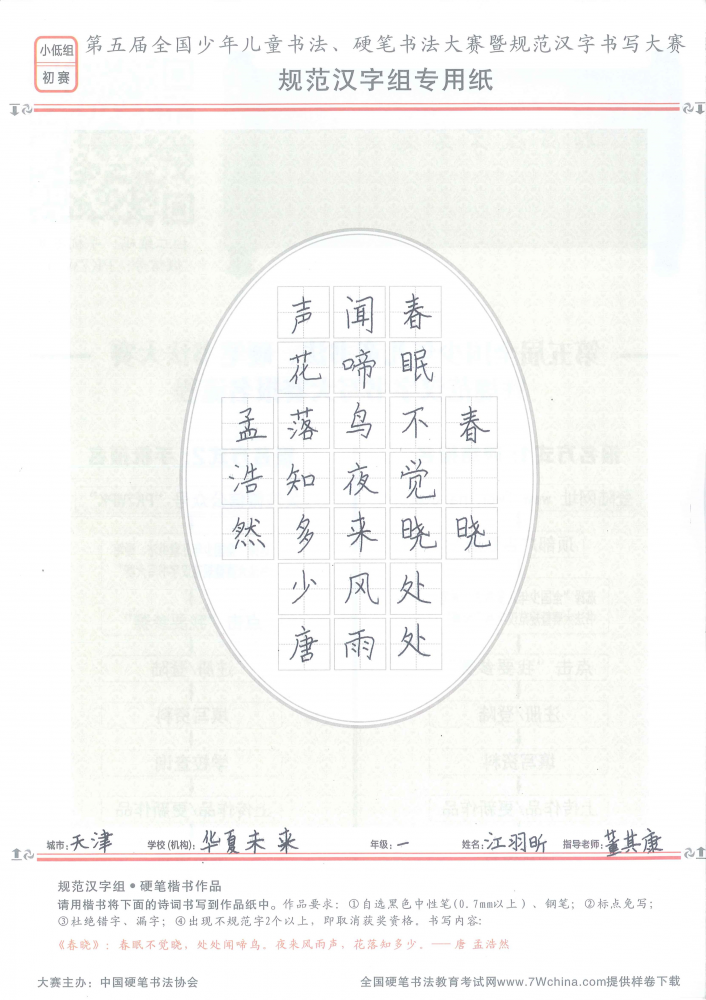 小低组
初赛
第五届全国少年儿童书法、硬笔书法大赛暨规范汉字书写大赛
规范汉字组专用纸
春晓
春眠不觉晓处处
闻啼鸟夜来风雨
声花落知多少唐
孟浩然
城市:天津 学校(机构):华夏未来 年级:一 姓名:江羽昕 指导老师:董其康
规范汉字组•硬笔楷书作品
请用楷书将下面的诗词书写到作品纸中。作品要求：①自选黑色中性笔(0.7mm以上)、钢笔；②标点免写；
③杜绝错字、漏字；④出现不规范字2个以上，即取消获奖资格。书写内容:
《春晓》：春眠不觉晓，处处闻啼鸟。夜来风雨声，花落知多少。——唐 孟浩然
大赛主办：中国硬笔书法协会 全国硬笔书法教育考试网www.7Wchina.com提供样卷下载